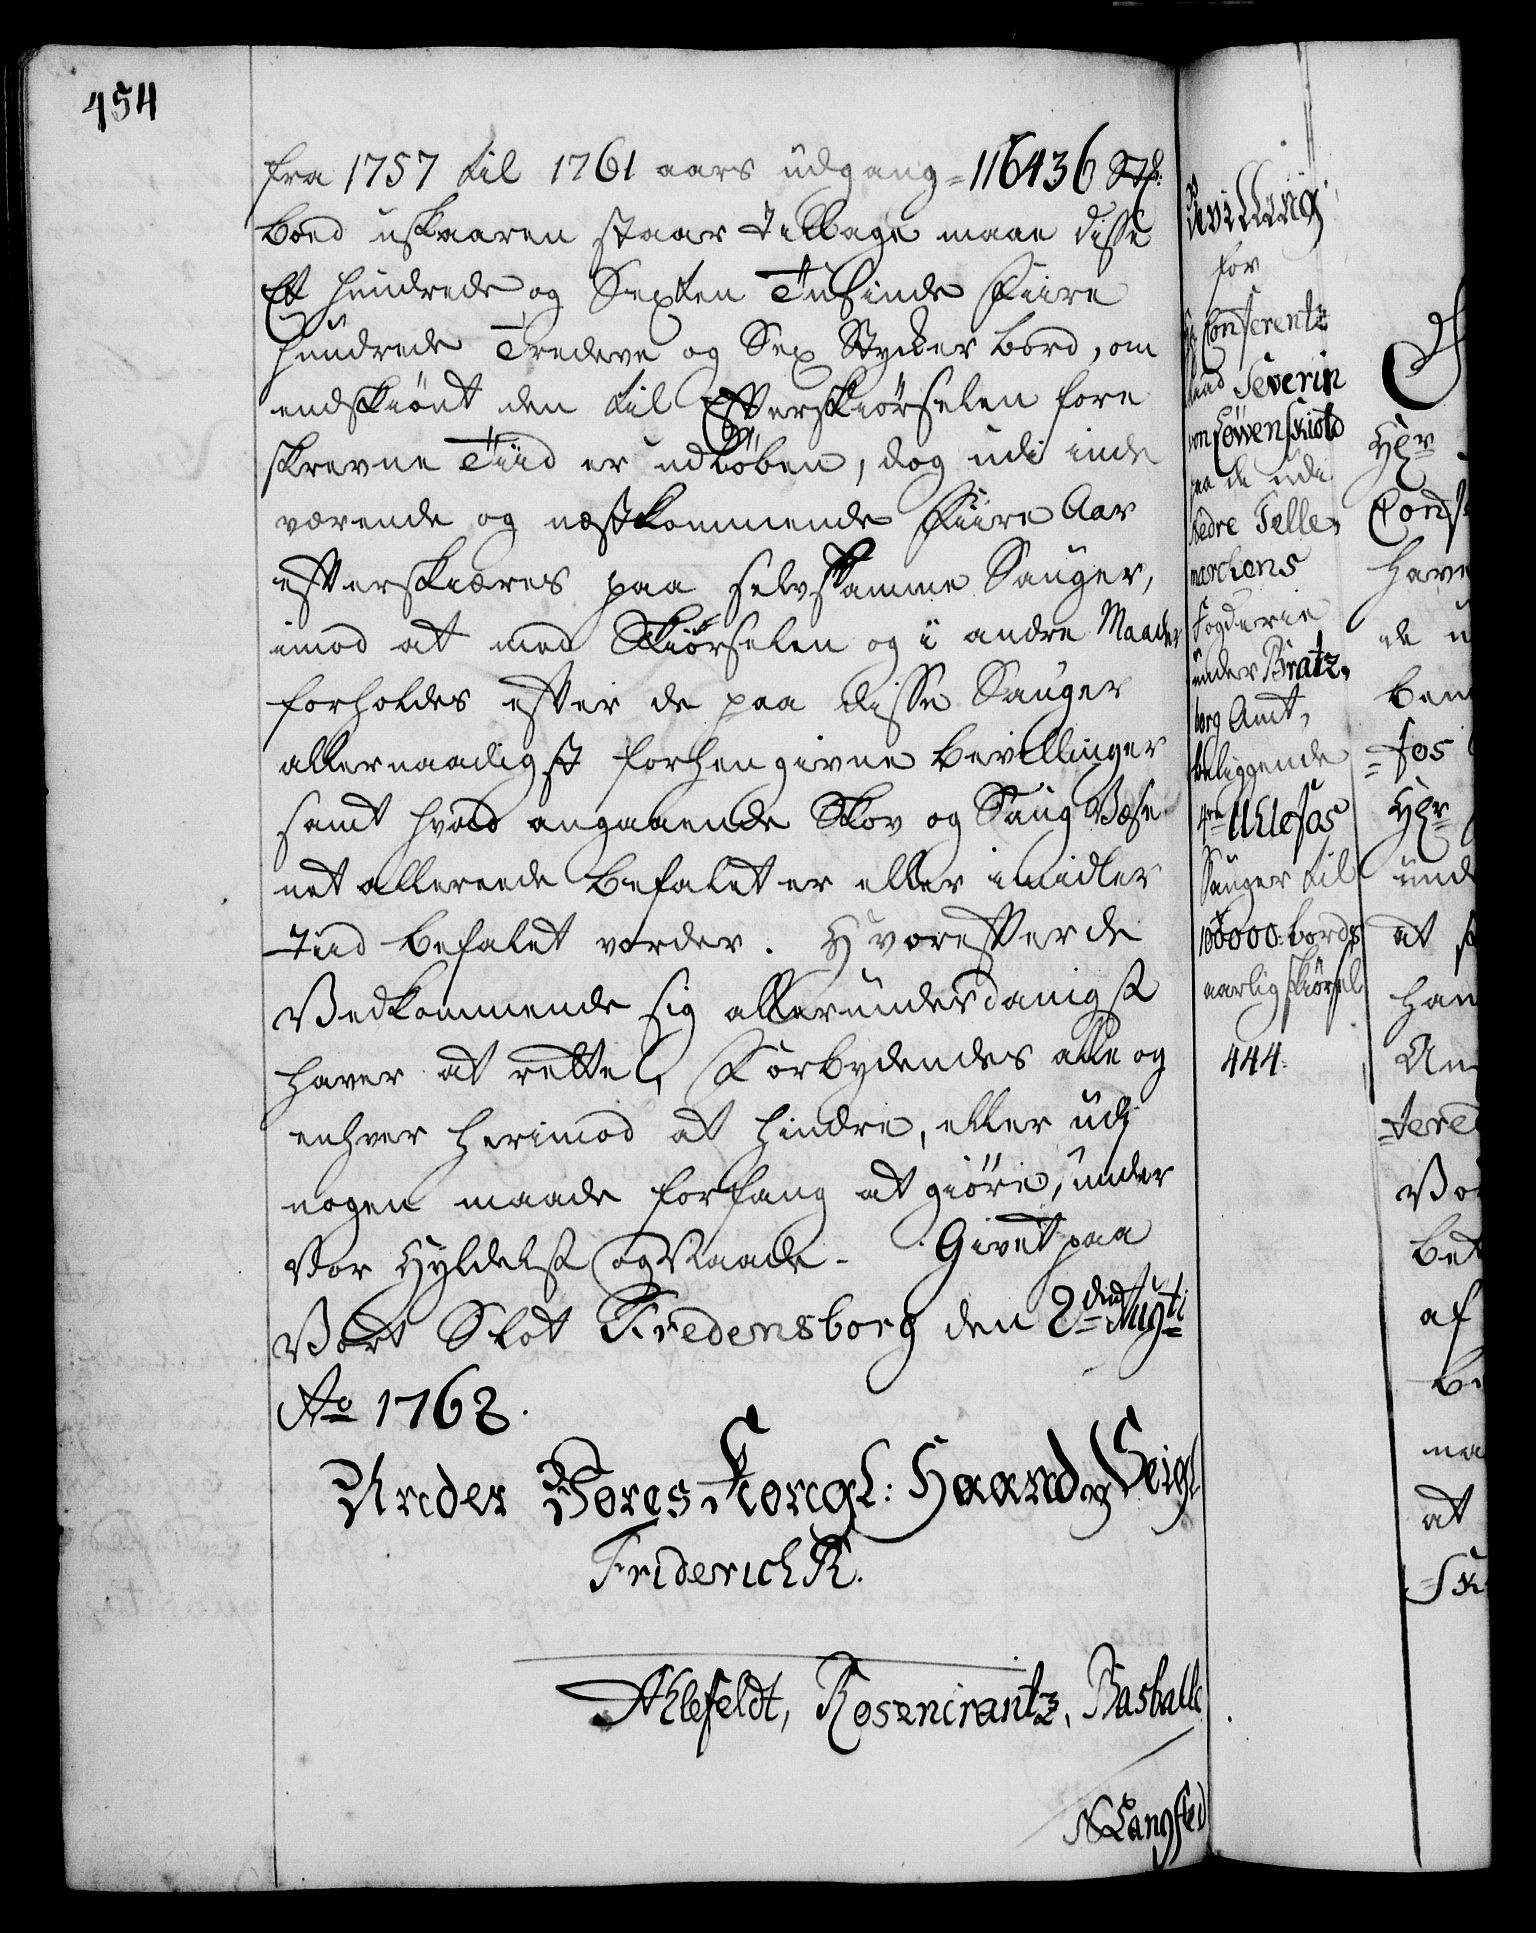 454
fra 1757 til 1761 aars udgang = 116436 Stk:
bord uskaaren staar tilbage maae disse
Et hundrede og Sexten Tusinde Fiire
hundrede Tredeve og Sex Stycker bord, om
endskiönt den til Efterskiörselen fore
skrevne Tiid er udlöben, dog udi inde
værende og næstkommende Fiire Aar
efterskiæres paa selvsamme Sauger,
imod at med Skiörselen og i andre Maader
forholdes efter de paa disse Sauger
allernaadigst forhen givne bevillinger
samt hvad angaaende Skov og Saug Væse
net allerede befalet er eller imidler
tiid befalet vorder. Hvorefter de
Vedkommende sig allerunderdanigst
haver at rette, Forbydendes alle og
enhver herimod at hindre, eller udj
nogen maade forfang at giöre, under
Vor Hyldest og Naade. Givet paa
Vort Slot Fredensborg den 2den Augti
Ao 1762.
Under Vores Kongl: Haand og Seigl
Friderich R.
Ahlefeldt, Rosencrantz, Basballe
N Langsted
Bevilling
for
Hr Conferentz
raad Severin
von Löwenskiold
paa de udi
Nedre Telle,
marchens
Fogderie
under Bratz,
borg Amt,
beliggende
4re Ulefos
Sauger til
100000: bords
aarlig skiörsel
444.
Hr
Conf
have
de u
bem
= fos
Hr
und
at
han
An
= tered
Vor
bet
af
be
maa
at
= Sk